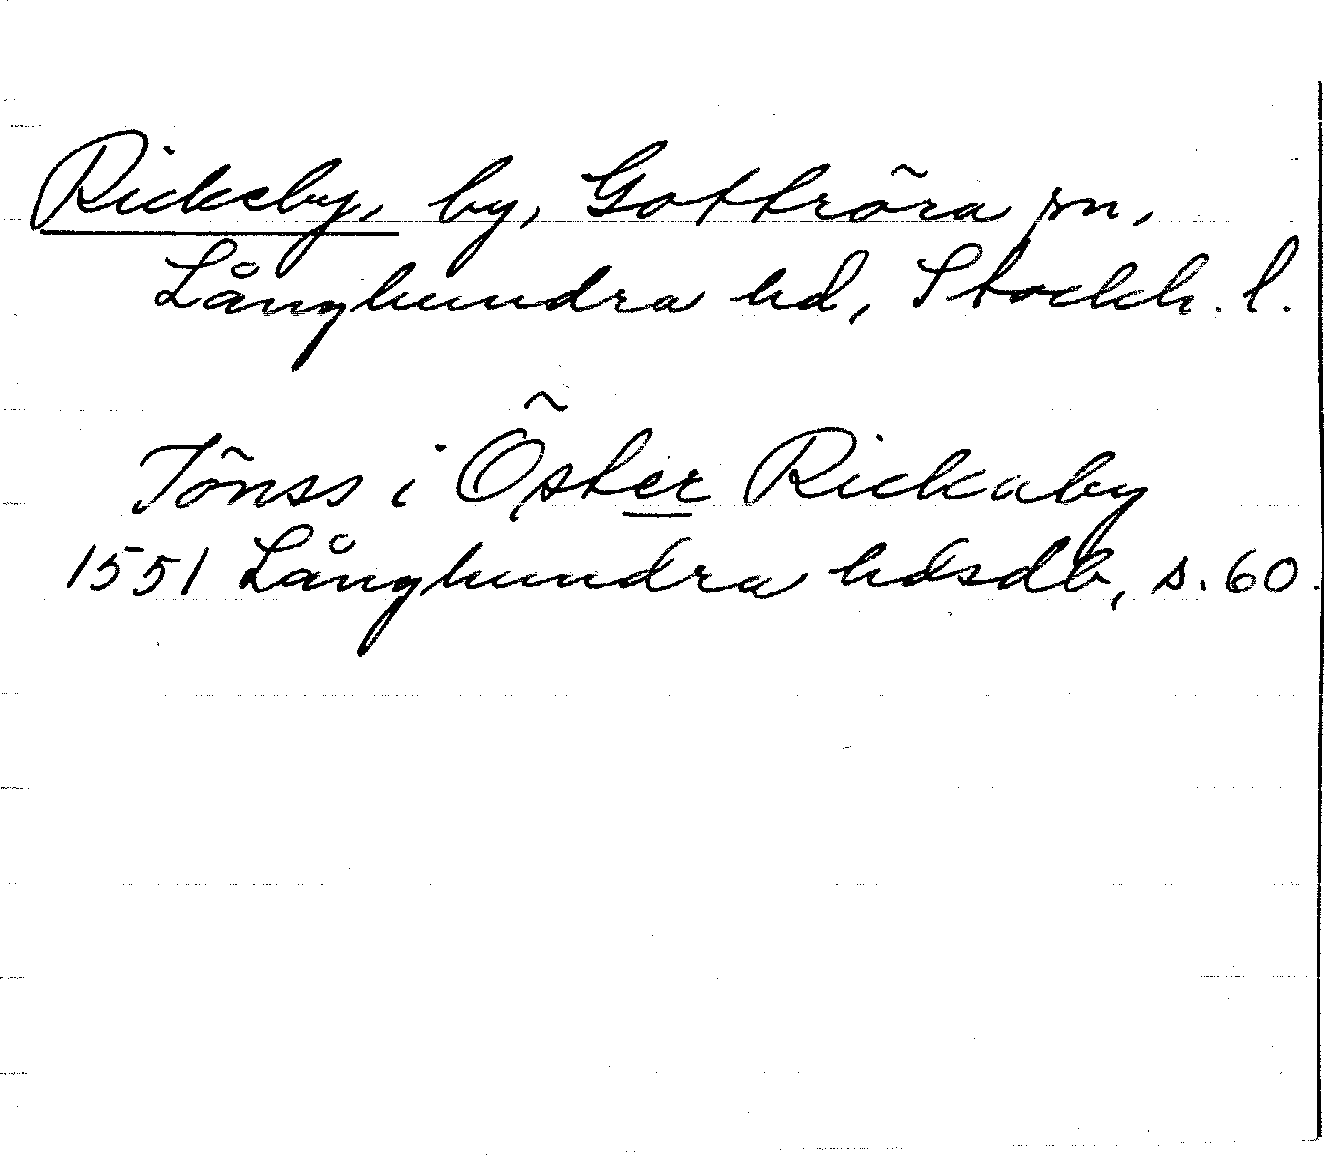 Rickeby, by, Gottröra sn,
Långhundra hd, Stockh. l.
Jönss i Öster Rickaby
1551 Långhundra hdsdb, s. 60.